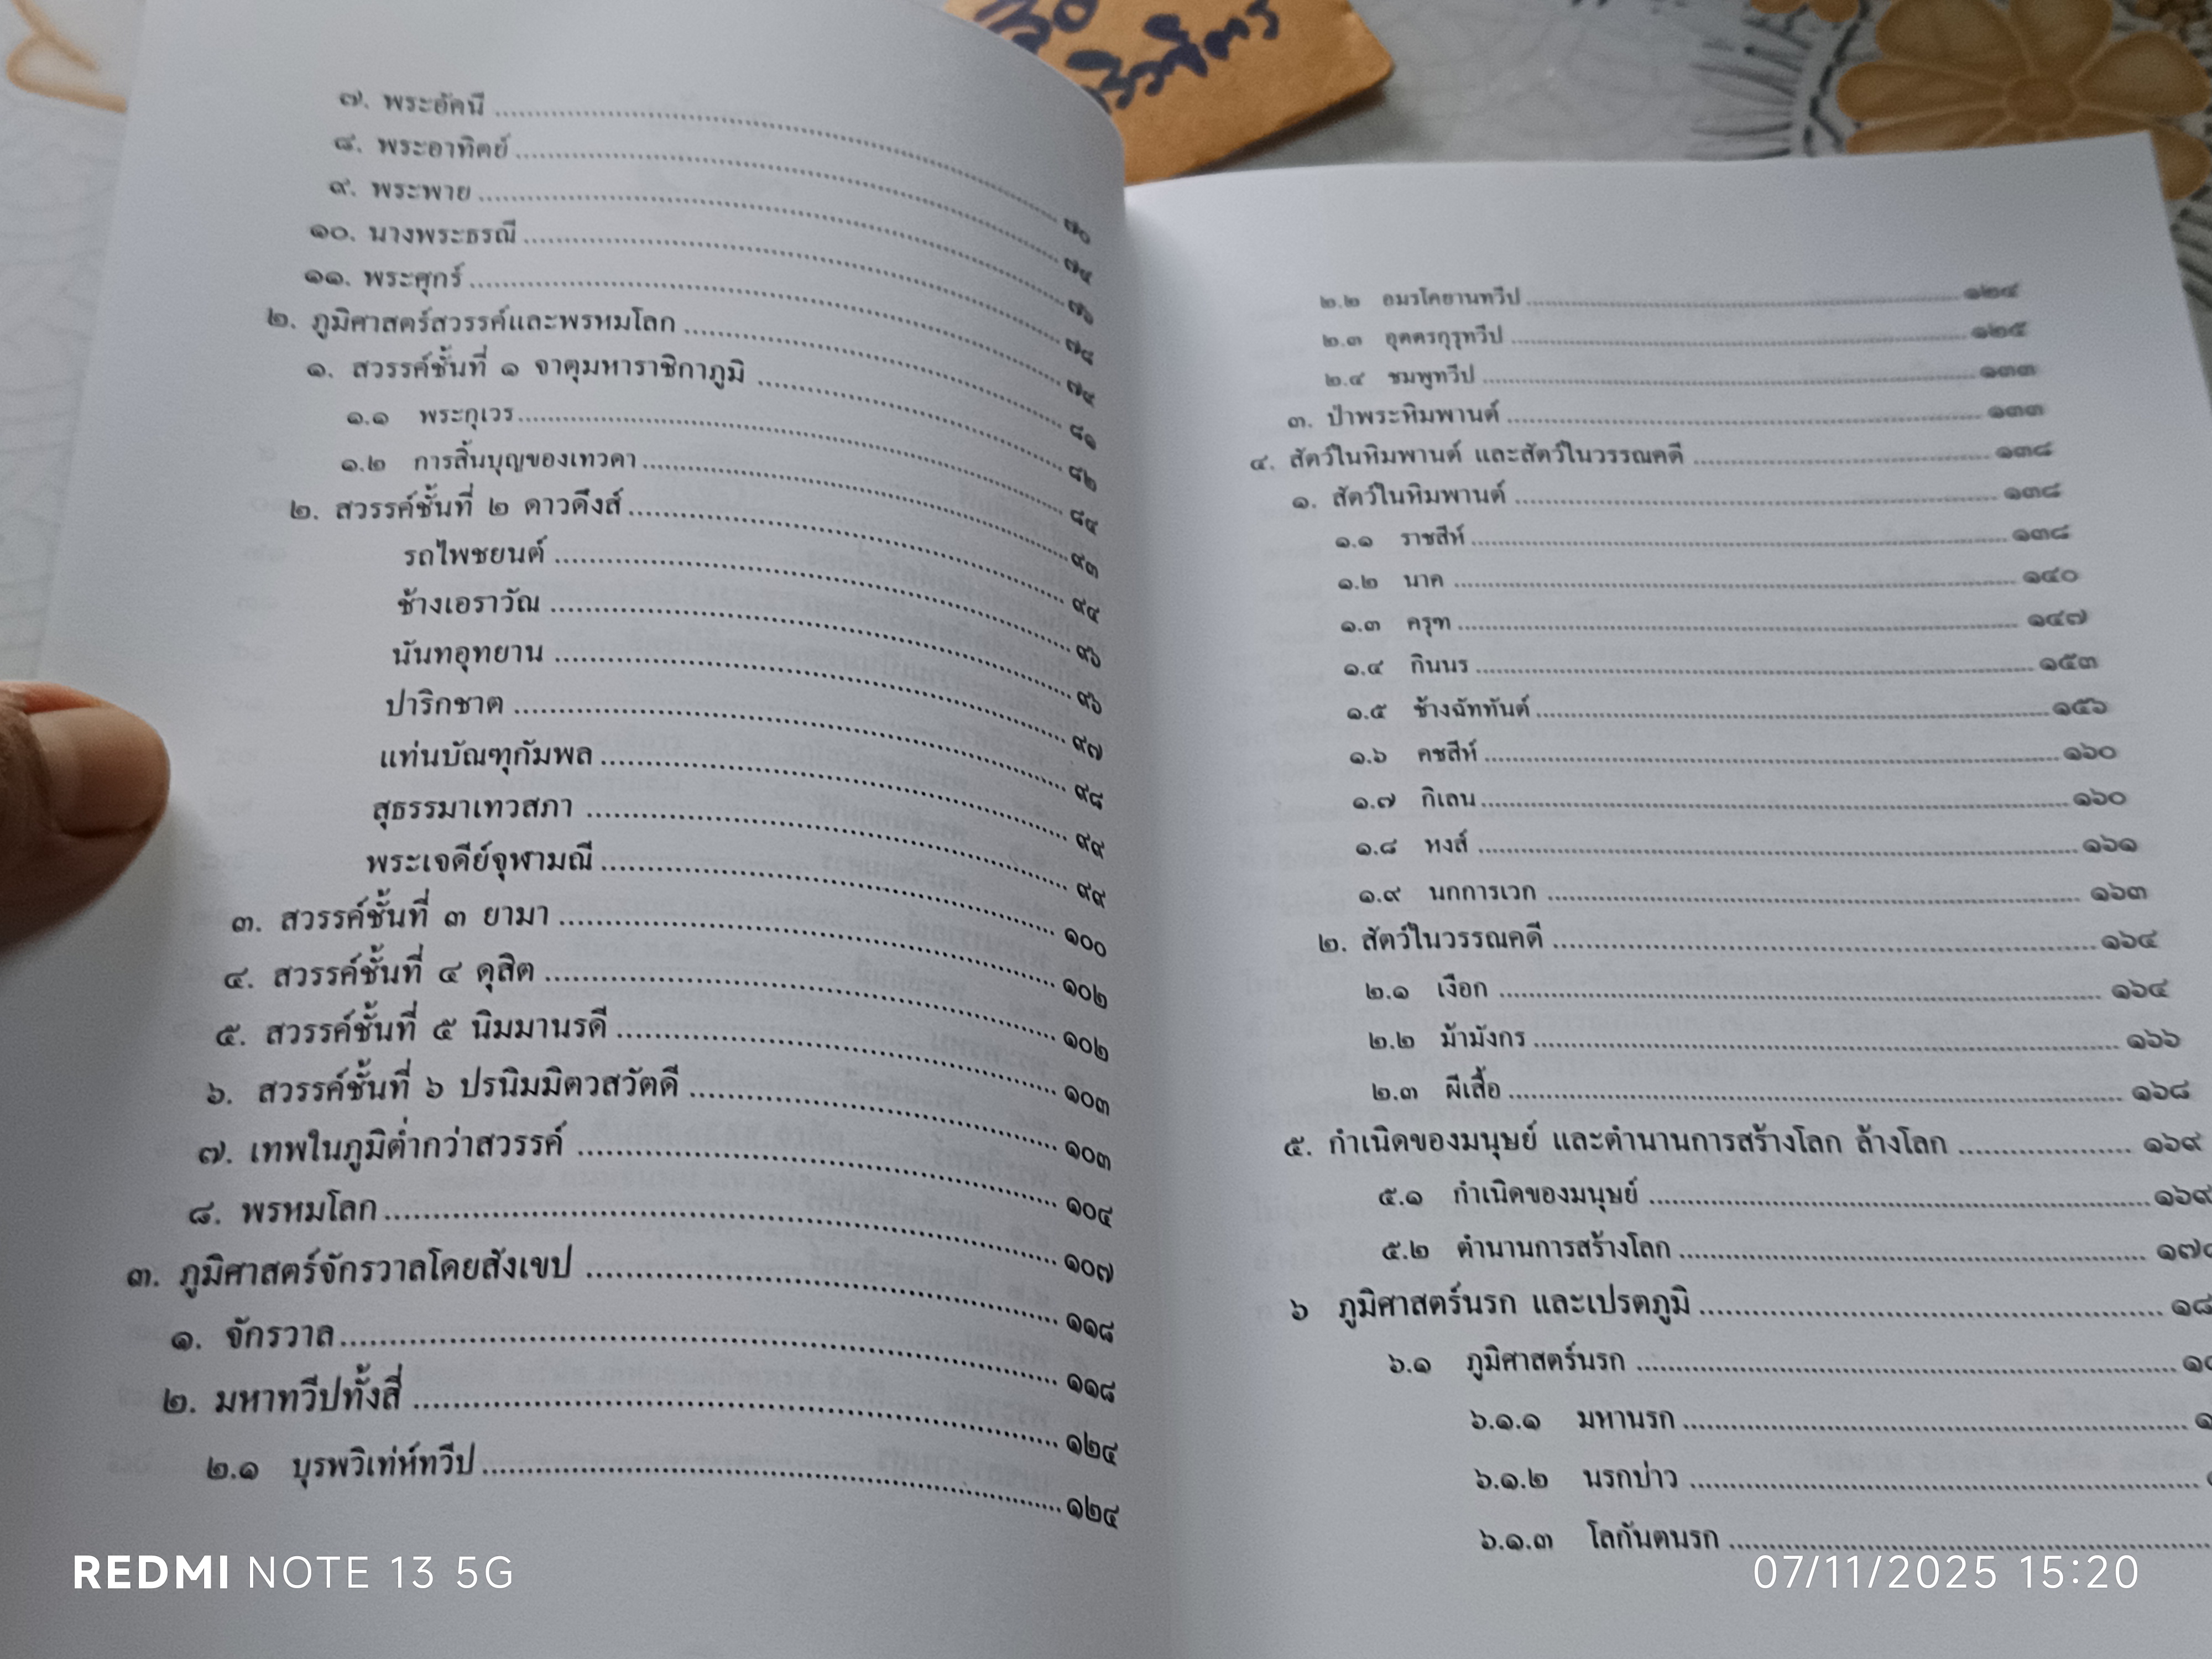 ๗. พระอัคนี ........ ๗๐
๘. พระอาทิตย์ ........ ๗๔
๙. พระพาย ........ ๗๖
๑๐. นางพระธรณี ........ ๗๘
๑๑. พระศุกร์ ........ ๗๙
๒. ภูมิศาสตร์สวรรค์และพรหมโลก ........ ๘๑
๑. สวรรค์ชั้นที่ ๑ จาตุมหาราชิกาภูมิ ........ ๘๒
๑.๑ พระกุเวร ........ ๘๔
๑.๒ การสิ้นบุญของเทวดา ........ ๙๓
๒. สวรรค์ชั้นที่ ๒ ดาวดึงส์ ........ ๙๔
รถไพชยนต์ ........ ๙๖
ช้างเอราวัณ ........ ๙๖
นันทอุทยาน ........ ๙๗
ปาริกชาต ........ ๙๘
แท่นบัณฑุกัมพล ........ ๙๙
สุธรรมาเทวสภา ........ ๙๙
พระเจดีย์จุฬามณี ........ ๑๐๐
๓. สวรรค์ชั้นที่ ๓ ยามา ........ ๑๐๒
๔. สวรรค์ชั้นที่ ๔ ดุสิต ........ ๑๐๒
๕. สวรรค์ชั้นที่ ๕ นิมมานรดี ........ ๑๐๓
๖. สวรรค์ชั้นที่ ๖ ปรนิมมิตวสวัตดี ........ ๑๐๓
๗. เทพในภูมิต่ำกว่าสวรรค์ ........ ๑๐๔
๘. พรหมโลก ........ ๑๐๗
๓. ภูมิศาสตร์จักรวาลโดยสังเขป ........ ๑๑๘
๑. จักรวาล ........ ๑๑๘
๒. มหาทวีปทั้งสี่ ........ ๑๒๔
๒.๑ บุรพวิเท่ห์ทวีป ........ ๑๒๔
๒.๒ อมรโคยานทวีป ........ ๑๒๔
๒.๓ อุตตรกุรุทวีป ........ ๑๒๕
๒.๔ ชมพูทวีป ........ ๑๓๓
๓. ป่าพระหิมพานต์ ........ ๑๓๓
๔. สัตว์ในหิมพานต์ และสัตว์ในวรรณคดี ........ ๑๓๘
๑. สัตว์ในหิมพานต์ ........ ๑๓๘
๑.๑ ราชสีห์ ........ ๑๓๘
๑.๒ นาค ........ ๑๔๐
๑.๓ ครุฑ ........ ๑๔๗
๑.๔ กินนร ........ ๑๕๓
๑.๕ ช้างฉัททันต์ ........ ๑๕๖
๑.๖ คชสีห์ ........ ๑๖๐
๑.๗ กิเลน ........ ๑๖๐
๑.๘ หงส์ ........ ๑๖๑
๑.๙ นกการเวก ........ ๑๖๓
๒. สัตว์ในวรรณคดี ........ ๑๖๔
๒.๑ เงือก ........ ๑๖๔
๒.๒ ม้ามังกร ........ ๑๖๖
๒.๓ ผีเสื้อ ........ ๑๖๘
๕. กำเนิดของมนุษย์ และตำนานการสร้างโลก ล้างโลก ........ ๑๖๙
๕.๑ กำเนิดของมนุษย์ ........ ๑๖๙
๕.๒ ตำนานการสร้างโลก ........ ๑๗
๖ ภูมิศาสตร์นรก และเปรตภูมิ ........ ๑๘
๖.๑ ภูมิศาสตร์นรก ........ ๑
๖.๑.๑ มหานรก ........
๖.๑.๒ นรกบ่าว ........
๖.๑.๓ โลกันตนรก ........
REDMI NOTE 13 5G
07/11/2025 15:20